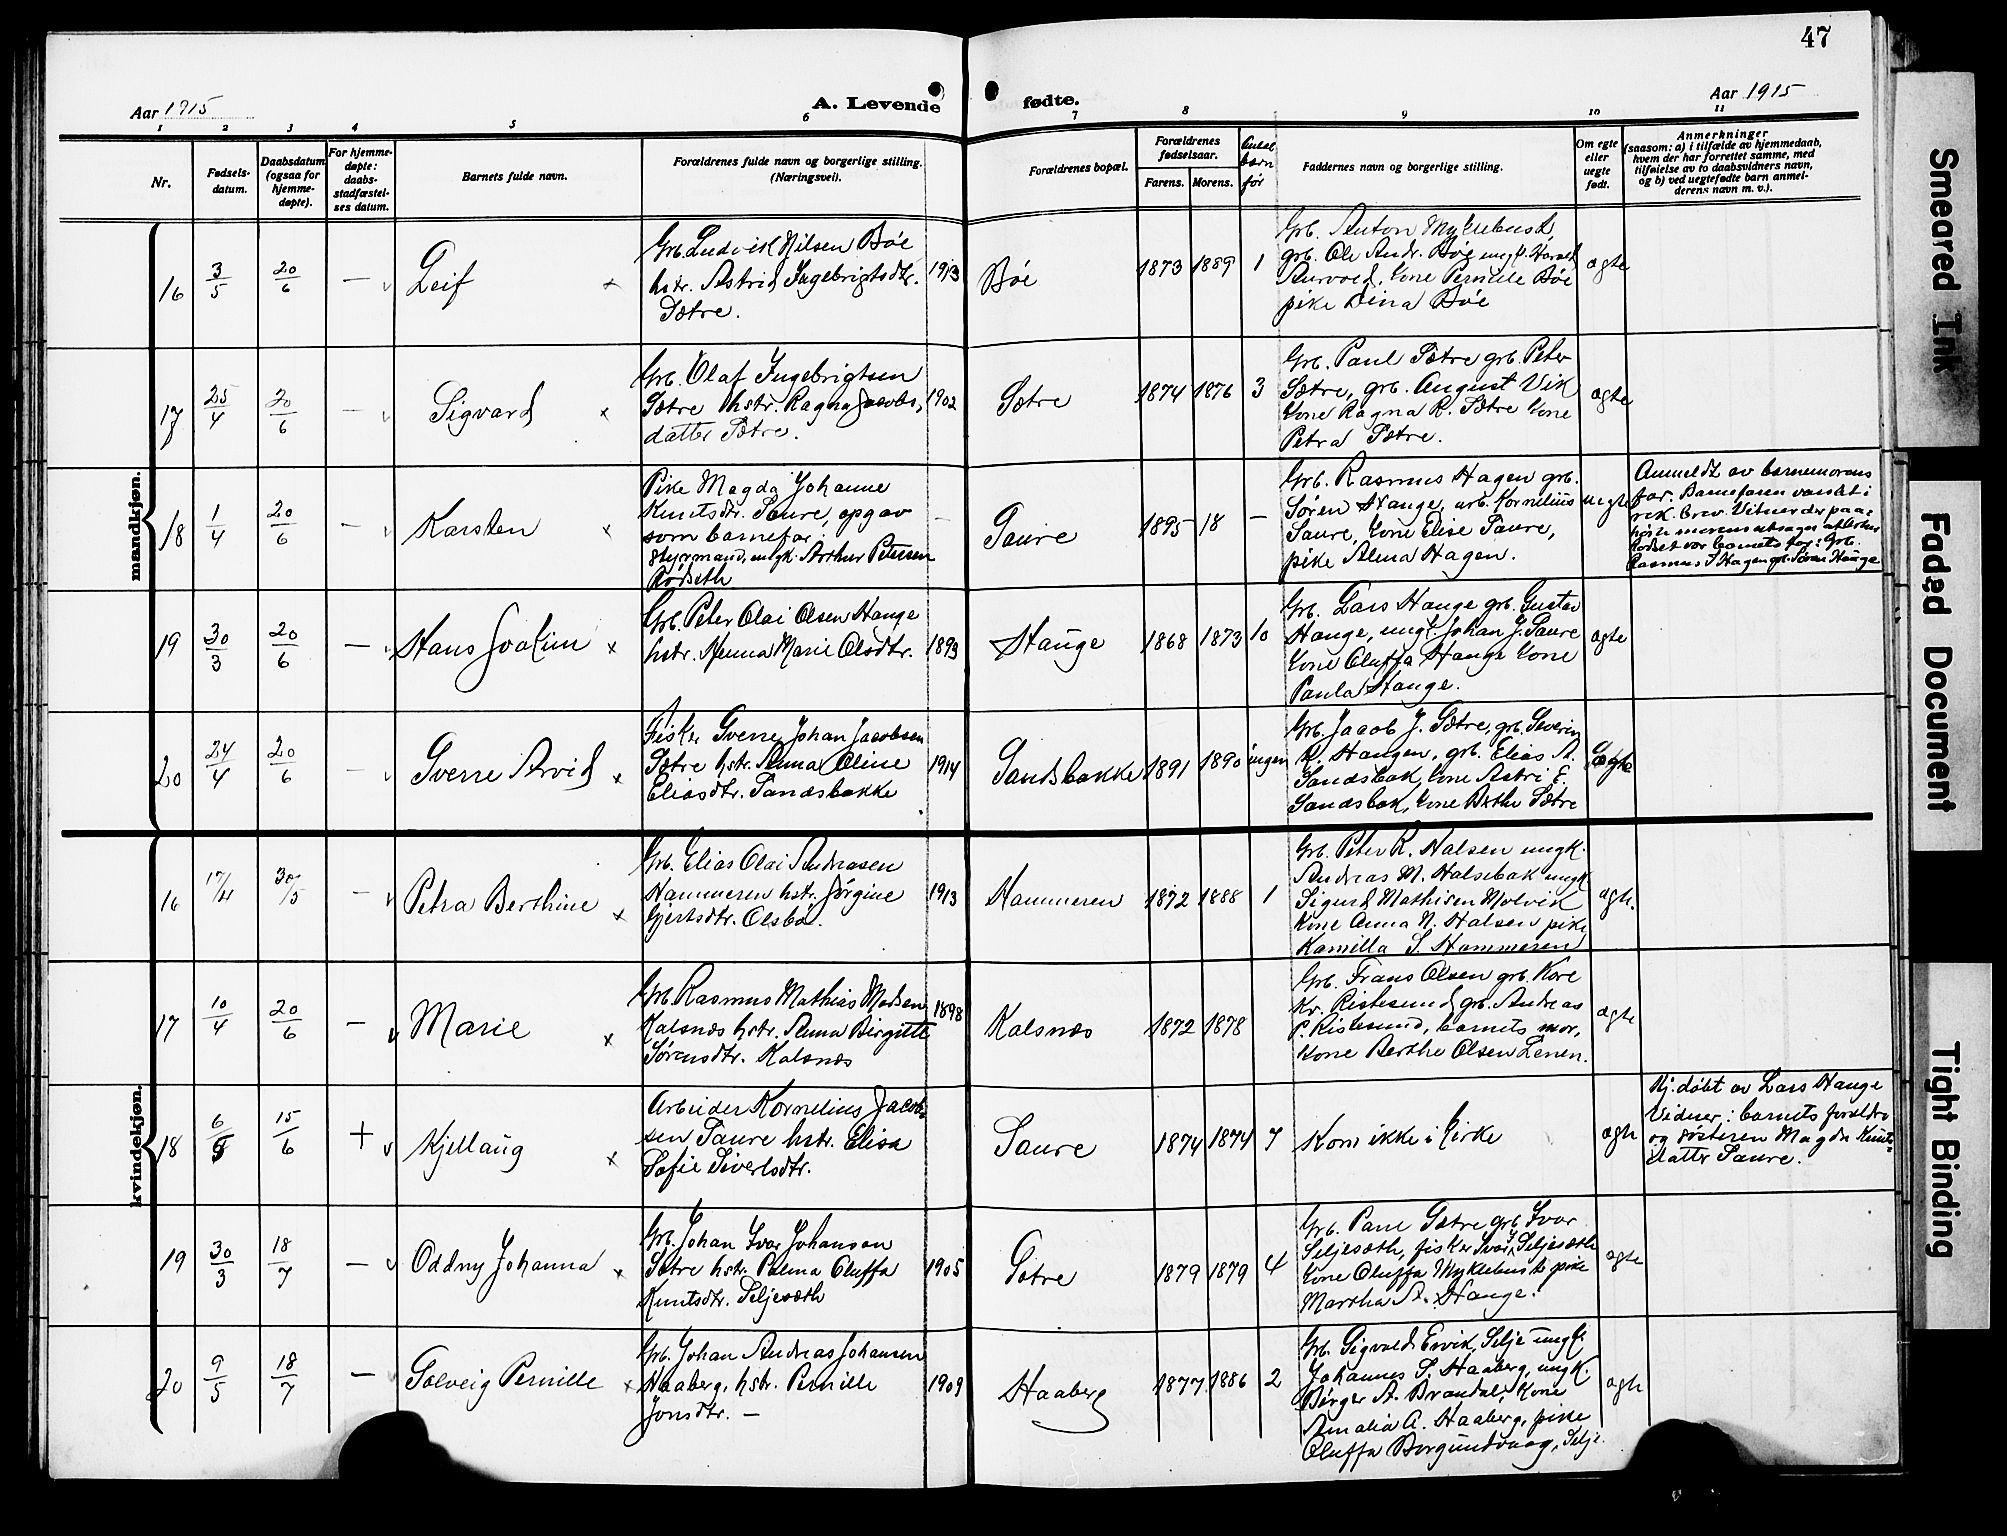 47
Aar 1915
A. Levende fødte.
Aar 1915
1 2 3 4 5 6 7 8 9 10 11
Nr.
Fødsels-
datum.
Daabsdatum
(ogsaa for
hjemme-
døpte).
For hjemme-
døpte:
daabs-
stadfæstel-
ses datum.
Barnets fulde navn.
Forældrenes fulde navn og borgerlige stilling.
(Næringsvei).
Forældrenes bopæl.
Forældrenes
fødselsaar.
Farens. Morens.
Antal
barn
før
Faddernes navn og borgerlige stilling.
Om egte
eller
uegte
født.
Anmerkninger
(saasom: a) i tilfælde av hjemmedaab,
hvem der har forrettet samme, med
tilføielse av to daabsvidners navn,
og b) ved uegtefødte barn anmel-
derens navn m. v.).
mandkjøn.
16 3/5 20/6 — Leif
Grb. Ludvik Nilsen Bøe
hstr. Astrid Ingebrigtsdtr.
Sætre.
1913 Bøe 1873 1889 1
Grb. Anton Myklebust
grb. Ole Andr. Bøe ungk. Harald
Aurvold, kone Pernille Bøe
pike Dina Bøe
ægte
17 25/4 20/6 — Sigvard
Grb. Olaf Ingebrigtsen
Sætre hstr. Ragna Jacobs,
datter Sætre.
1902 Sætre 1874 1876 3
Grb. Paul Sætre grb. Peter
Sætre, grb. August Vik
kone Ragna R. Sætre kone
Petra Sætre.
ægte
18 1/4 20/6 — Karsten
Pike Magda Johanne
Knutsdtr. Saure, opgav
som barnefar:
Styrmand, ungk. Arthur Petersen
Rødseth
— Saure 1895 18 —
Grb. Rasmus Hagen grb.
Søren Hauge, arb. Kornelius
Saure, kone Elise Saure,
pike Alma Hagen.
uegte
Anmeldt av barnemorens
far. Barnefaren varslet i
rek. brev. Vitner der paa
hørte morens utsagn at Arthur
Rødset var barnets far: Grb.
Rasmus J Hagen grb. Søren Hauge
19 30/3 20/6 — Hans Joakim
Grb. Peter Olai Olsen Hauge
hstr. Anna Marie Olsdtr.
1893 Hauge 1868 1873 10
Grb. Lars Hauge grb. Gustav
Hauge, ungk. Johan J. Saure
kone Oluffa Hauge kone
Paula Hauge.
ægte
20 24/4 20/6 — Sverre Arvid
Fisker Sverre Johan Jacobsen
Sætre hstr. Anna Oline
Eliasdtr. Sandsbakke
1914 Sandsbakke 1891 1890 ingen
Grb. Jacob J. Sætre, grb. Severin
R. Haugen, grb. Elias A.
Sandsbak, kone Astri E.
Sandsbak, kone Berthe Sætre
ægte
kvindekjøn.
16 17/4 30/5 — Petra Berthine
Grb. Elias Olai Andreasen
Hammeren hstr. Jørgine
Gjertsdtr. Olsbø.
1913 Hammeren 1872 1888 1
Grb. Peter R. Halsen ungk.
Andreas M. Halsebak ungk
Sigurd Mathisen Molvik
Kone Anna N. Halsen pike
Kamilla S. Hammeren
ægt.
17 10/4 20/6 — Marie
Grb. Rasmus Mathias Madsen
Kalsnæs hstr. Anna Birgitte
Sørensdtr. Kalsnæs
1898 Kalsnæs 1872 1878
Grb. Frans Olsen grb. Kore
Kr. Ristesund grb. Andreas
P. Ristesund, barnets mor,
kone Berthe Olsen Lenen.
ægte
18 6/5 15/6 + Kjellaug
Arbeider Kornelius Jacob-
sen Saure hstr. Elisa
Sofie Sivertsdtr.
Saure 1874 1874 7
Kom ikke i kirke
ægte
Hj. døbt av Lars Hauge
Vidner: barnets forældre
og søsteren Magda Knuts-
datter Saure.
19 30/3 18/7 — Oddny Johanna
Grb. Johan Ivar Johansen
Sætre hstr. Palma Oluffa
Knutsdtr. Seljesæth
1905 Sætre 1879 1879 4
Grb. Paul Sætre grb. Ivar
Seljesæth, fisker Ivar J Seljesæth
kone Oluffa Myklebust pike
Martha A. Hauge.
ægte
20 9/5 18/7 — Solveig Pernille
Grb. Johan Andreas Johansen
Haaberg, hstr. Pernille
Jonsdtr. —
1909 Haaberg 1877 1886 2
Grb. Sigvald Ervik, Selje ungk.
Johannes S. Haaberg, ungk.
Børger A. Brandal, kone
Amalia A. Haaberg, pike
Oluffa Borgundvaag, Selje.
ægte
Smeared Ink
Faded Document
Tight Binding